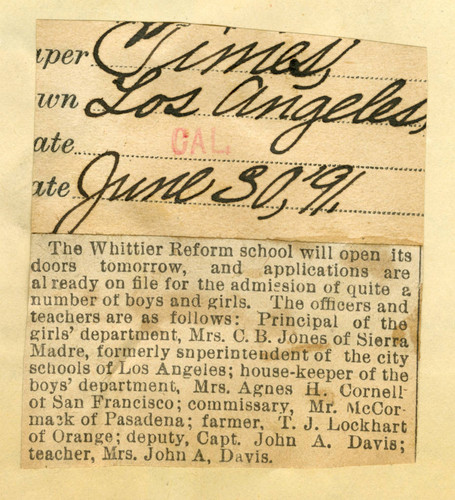 aper Times,
own Los Angeles,
ate CAL.
ate June 30, '91.
The Whittier Reform school will open its
doors tomorrow, and applications are
al ready on file for the admission of quite a
number of boys and girls. The officers and
teachers are as follows: Principal of the
girls' department, Mrs. C. B. Jones of Sierra
Madre, formerly snperintendent of the city
schools of Los Angeles; house-keeper of the
boys' department, Mrs. Agnes H. Cornell
of San Francisco; commissary, Mr. McCor-
mack of Pasadena; farmer, T. J. Lockhart
of Orange; deputy, Capt. John A. Davis;
teacher, Mrs. John A, Davis.